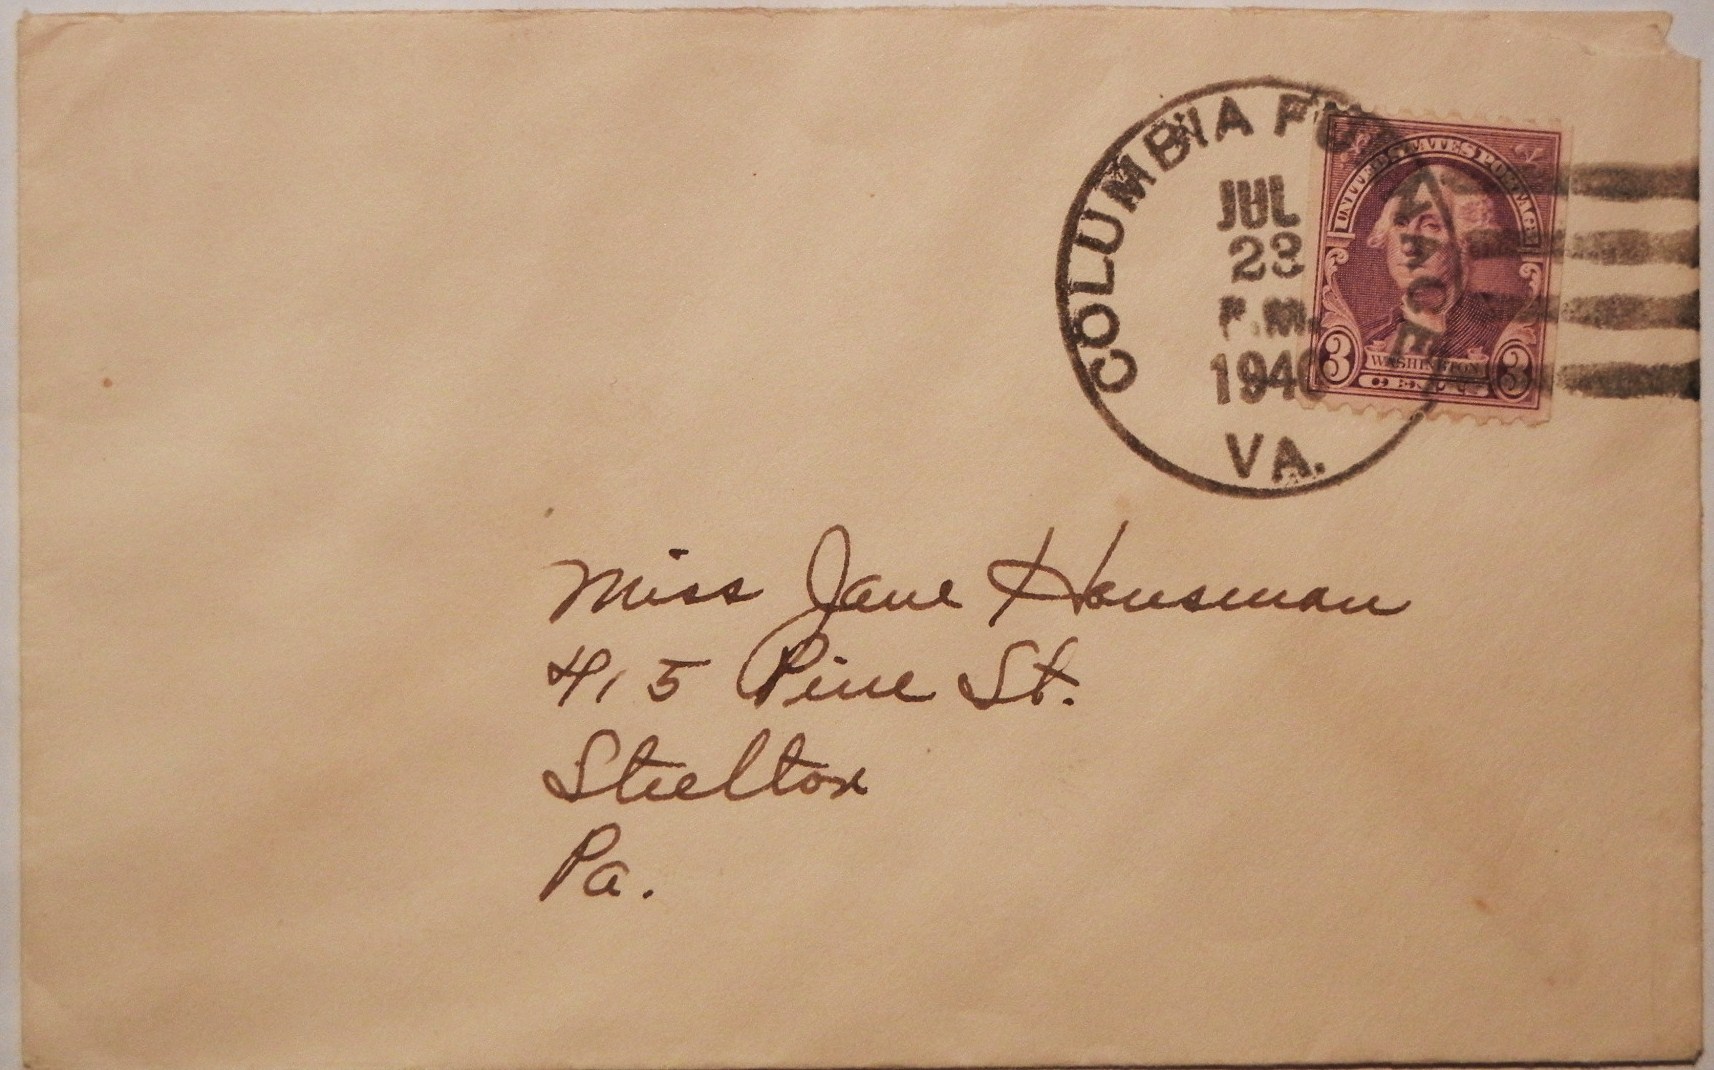 COLUMBIA FURNACE
JUL
23
P.M.
1940
VA.
UNITED STATES POSTAGE
3 WASHINGTON 3
Miss Jane Housman
415 Pine St.
Steelton
Pa.